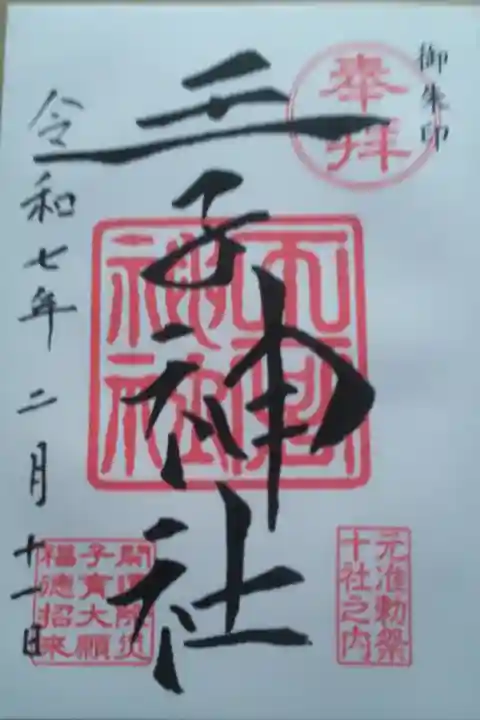 御朱印
奉拝
王子神社
元准勅祭
十社之内
令和七年二月十一日
開運除災
子育大願
福徳招来